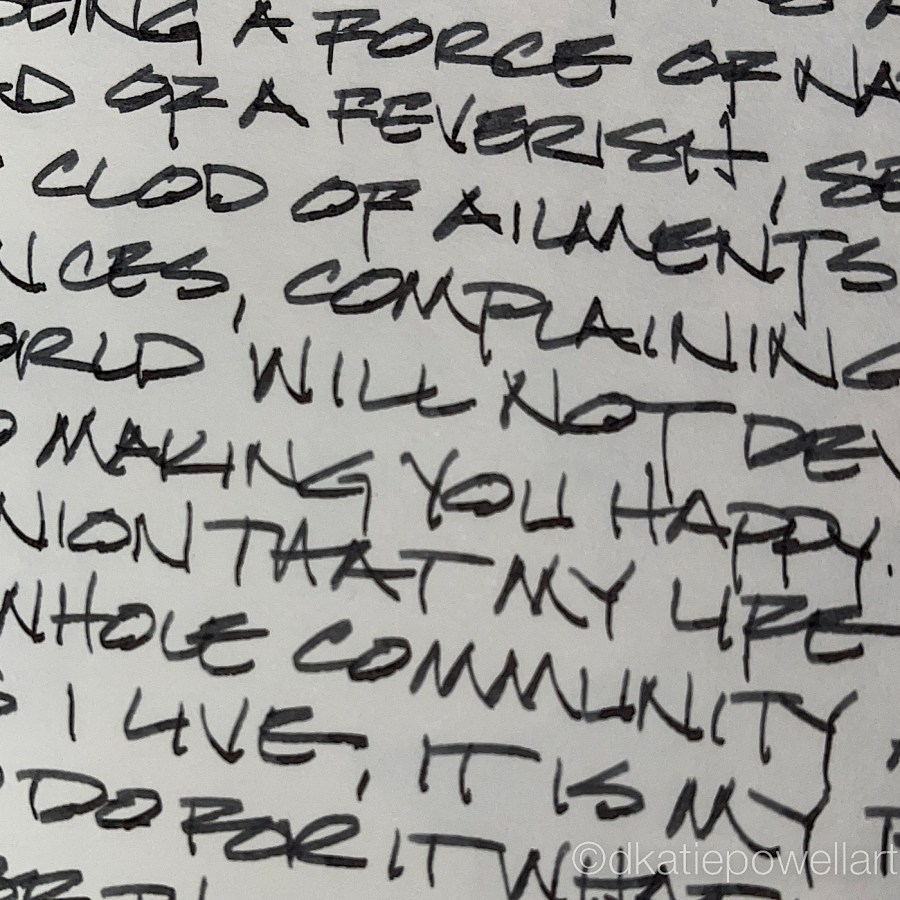 BEING A FORCE OF NA
D OF A FEVERISH, SE
CLOD OF AILMENTS
NCES, COMPLAINING
ORLD WILL NOT DEV
MAKING YOU HAPPY.
NION THAT MY LIFE
WHOLE COMMUNITY
S I LIVE, IT IS MY
DO FOR IT WHAT
©dkatiepowellart